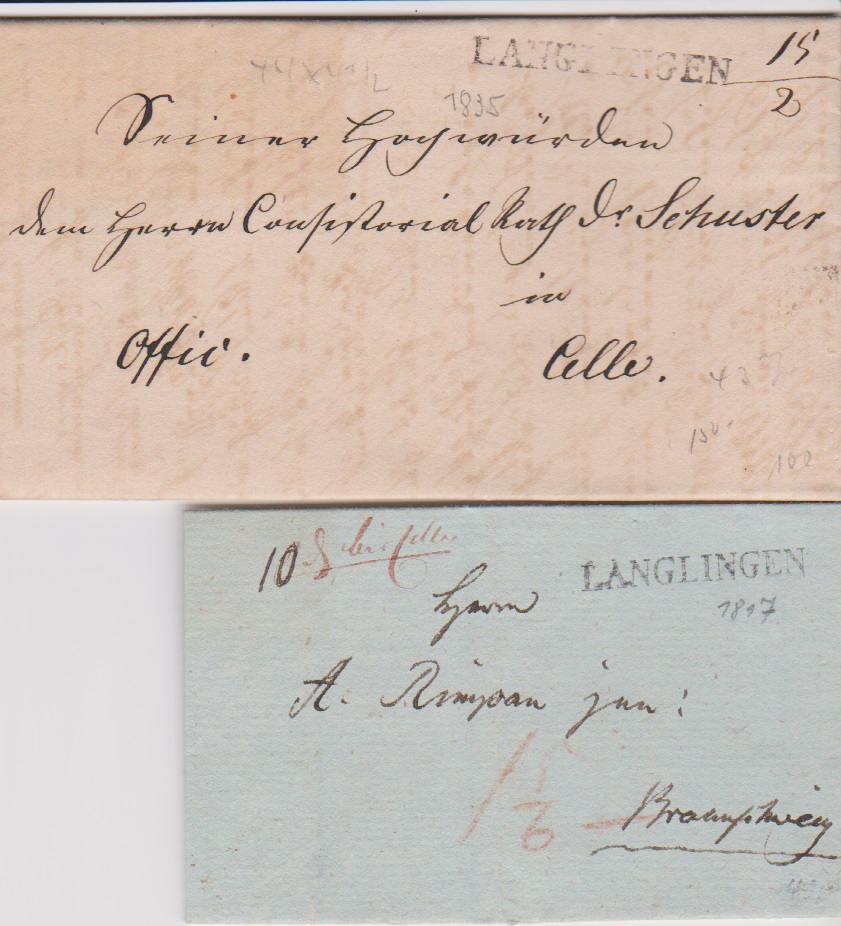 LANGLINGEN 15
2
44 x 4 1/2
1835
Seiner Hochwürden
dem Herrn Consistorial Rath Dr. Schuster
in
Offic. Celle.
437
150.-
100
10
LANGLINGEN
1817
Herrn
A. Rimpau jun:
Braunschweig